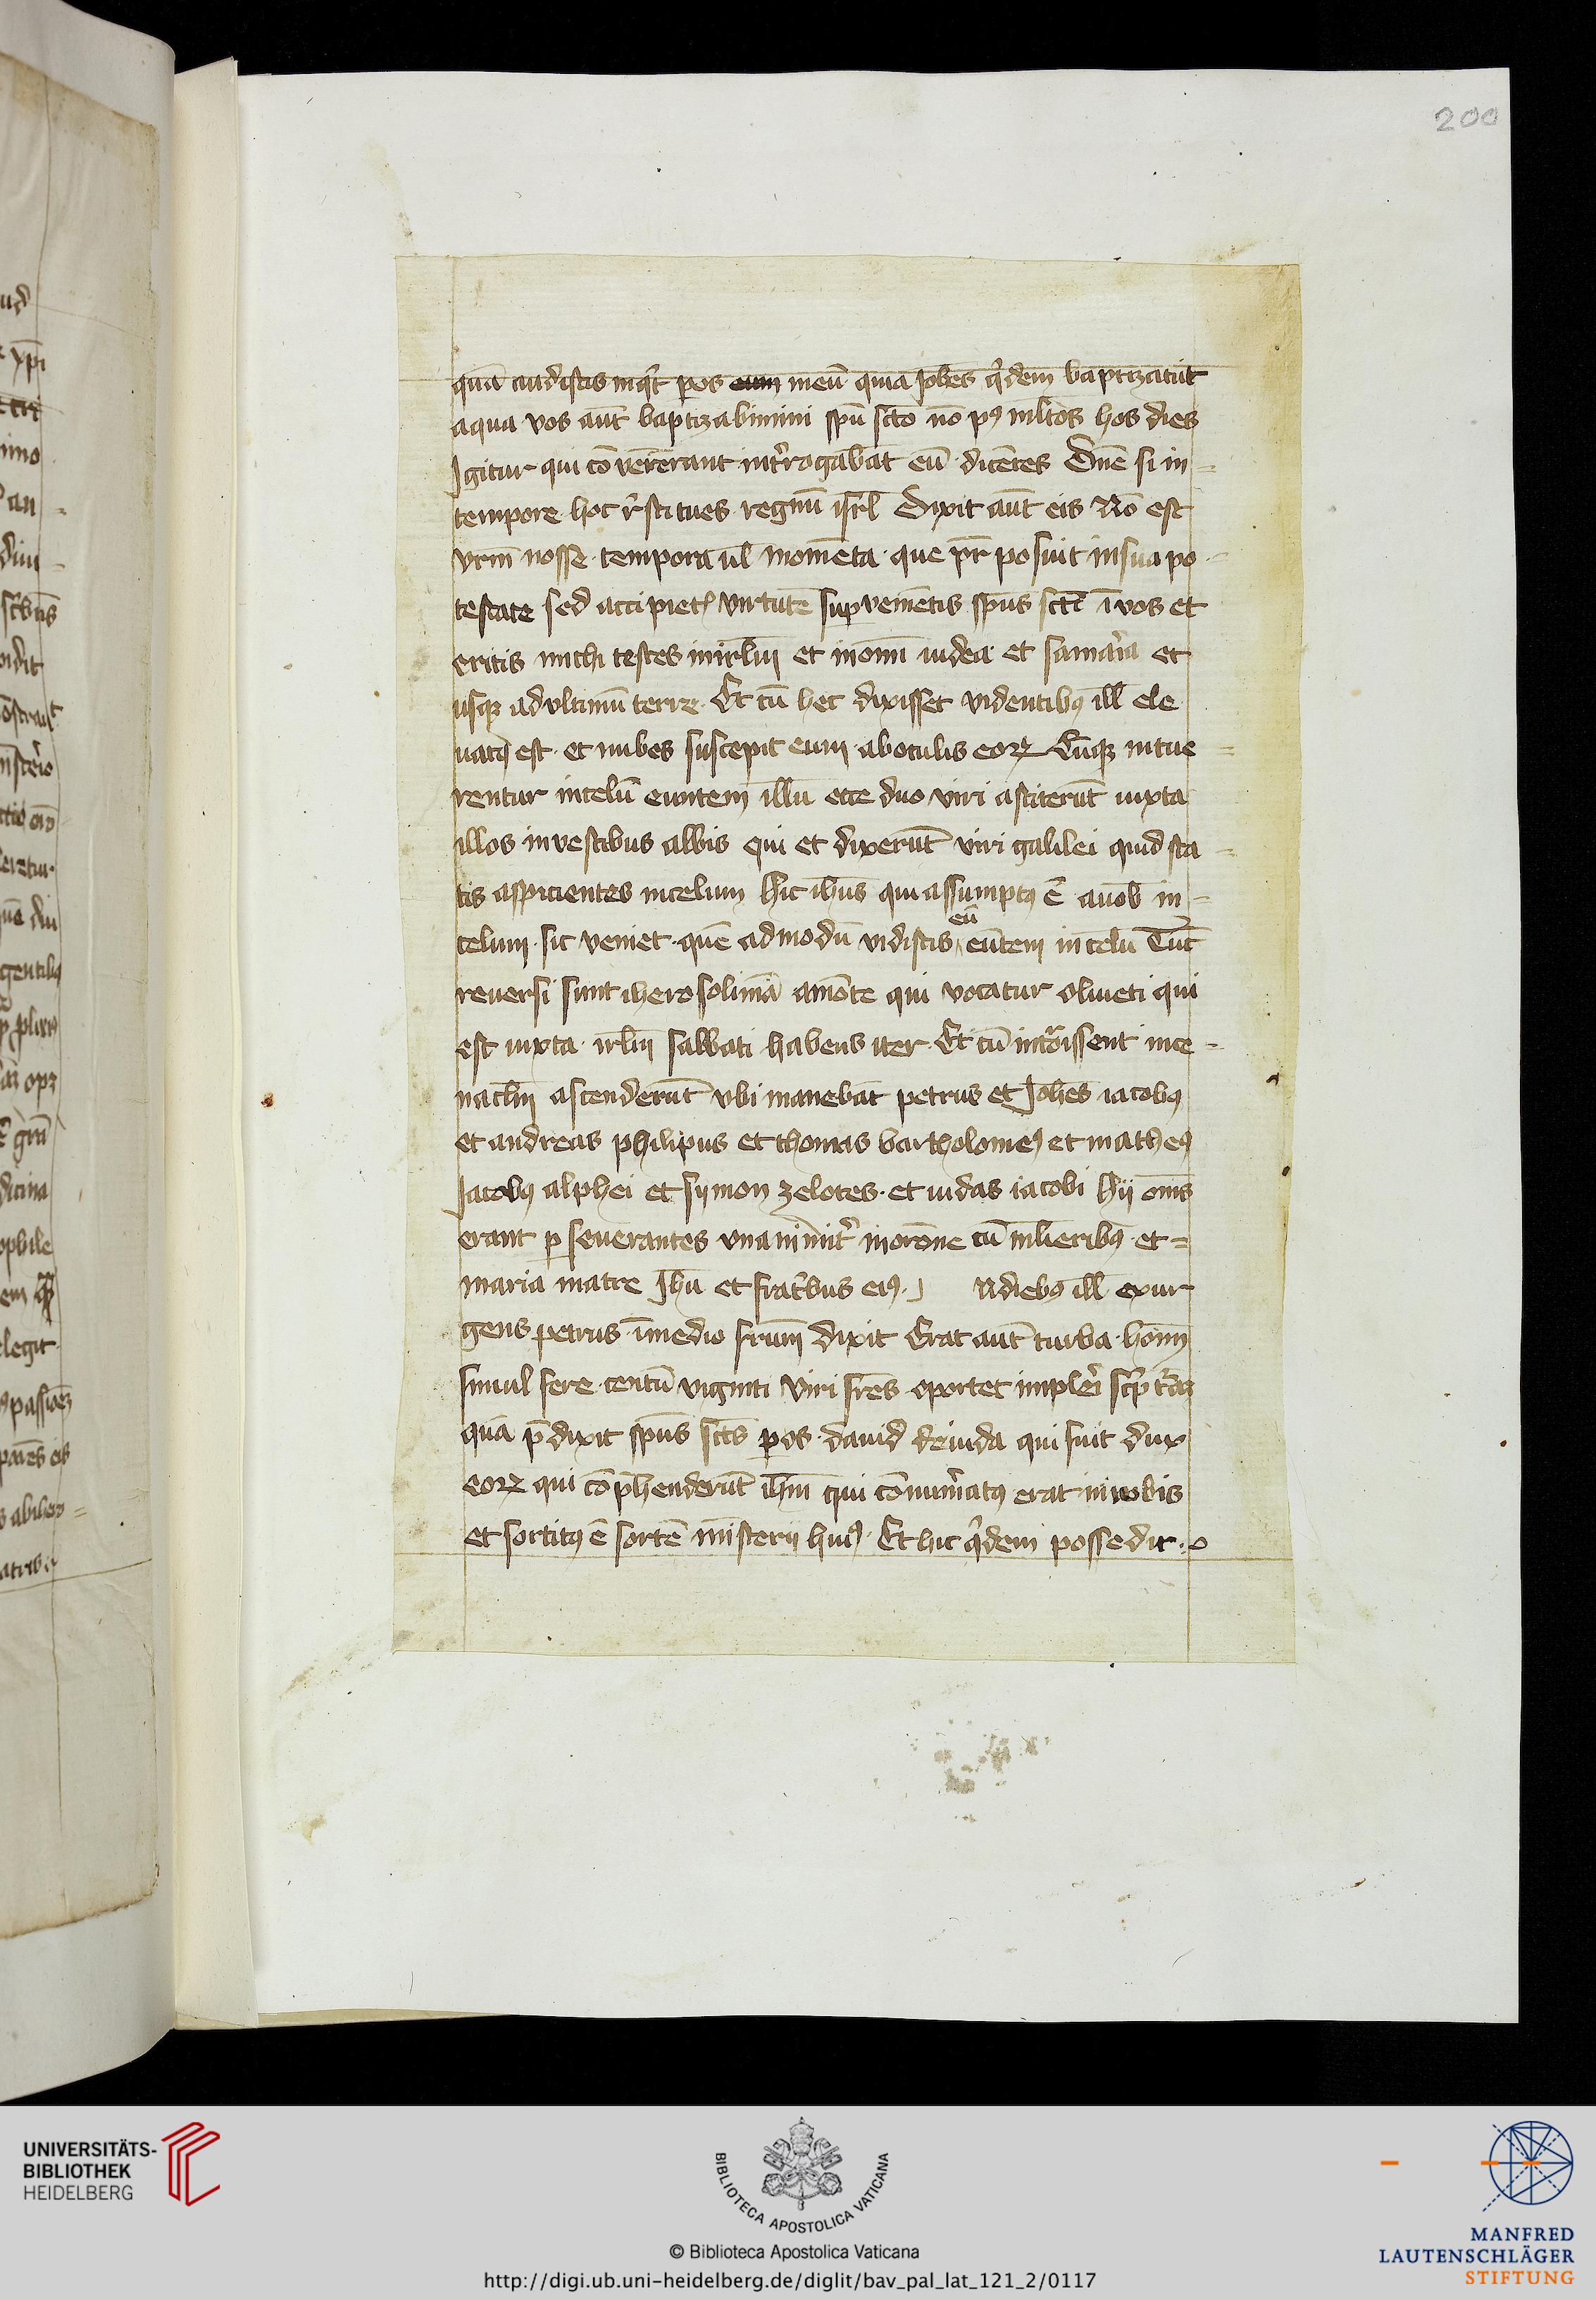 200
quā audistis inqͥt p os eum meū quia Johēs qͥdem baptizauit
aqua vos aūt baptizabimini spū scto nō pꝰ mltos hos dies
Igitur qui cōvenerant int̾rogabāt eū dicētes Dn̄e si in-
tempore hoc r̾stitues regnū isrl̄ Dixit aūt eis Nō est
vrm̄ nosse tempora ul̄ momēta que pr̄ posuit in sua po-
testate sed accipietꝭ virtutē supveniētis spūs scti ī vos et
eritis michi testes in irlm̄ et in omī iudea et samaria et
usqꝫ ad ultimū terre Et cū hec dixisset videntibꝰ ill̄ ele
uatꝰ est et nubes suscepit eum ab oculis eoꝝ Cūqꝫ intue-
rentur in celū euntem illū ecce duo viri astiterūt iuxta
illos in vestibus albis qui et dixerūt viri galilei quid sta-
tis aspicientes in celum Hic ihūs qui assumptꝰ ē a uob̄ in-
celum sic veniet quē admodū vidistis eū eūtem in celū Tūc
reuersi sunt iherosolimā a mōte qui vocatur oliueti qui
est iuxta irlm̄ sabbati habens iter Et cū introissent in ce-
naclm̄ ascenderūt vbi manebāt petrus et Johēs iacobꝰ
et andreas philipus et thomas bartholomeꝰ et matheꝰ
Jacobꝰ alphei et symon zelotes et iudas iacobi hij oms̄
erant pseuerantes vnanimit̾ in orōne cū mlieribꝰ et-
maria matre Jhū et frat̾bus eiꝰ J N diebꝰ ill̄ exur
gens petrus ī medio frum̄ dixit Erat aūt turba homm̄
simul fere centū viginti Viri frēs oportet implēri scpt̾aꝫ
quā p̄dixit spūs scts p os dauid de iuda qui fuit dux
eoꝝ qui cōphenderūt ihm̄ qui cōnum̾atꝰ erat in nobis
et sortitꝰ ē sortē mīsterij huiꝰ Et hic qͥdem possedit
UNIVERSITÄTS-
BIBLIOTHEK
HEIDELBERG
BIBLIOTECA APOSTOLICA VATICANA
© Biblioteca Apostolica Vaticana
http://digi.ub.uni-heidelberg.de/diglit/bav_pal_lat_121_2/0117
MANFRED
LAUTENSCHLÄGER
STIFTUNG